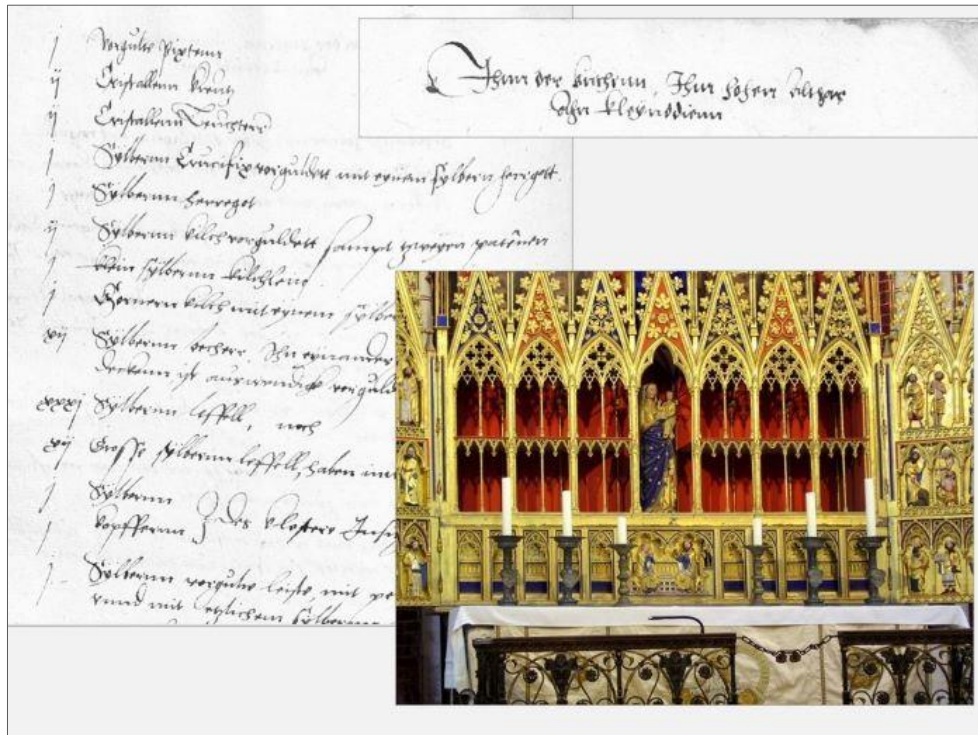 j vorgulte Pixtenn
ij Cristallenn kreutz
ij Cristallenn Leuchterr
j Sylbernn Crucifix vorguldett mit eynem sylbern hergott.
j Sylbernn herregot
ij Sylbernn kilch vorguldett sampt zweyen patênen
j klein sylbernn kilchlein
j kilch mit eynem sylber
xij Sylbernn bechere, Ihn eynander
deckenn ist auswendick vorguld
xxxj Sylbernn leffell, noch
xij Grosse sylbernn leffell, haben
j Sylbernn
j kopffernn des klosters
j Sylbernn vorgulte leiste, mit
vnnd mit etzlichem sylbernn
Ihnn der kirchenn, Ihm hohen altar
ahn kleynodienn